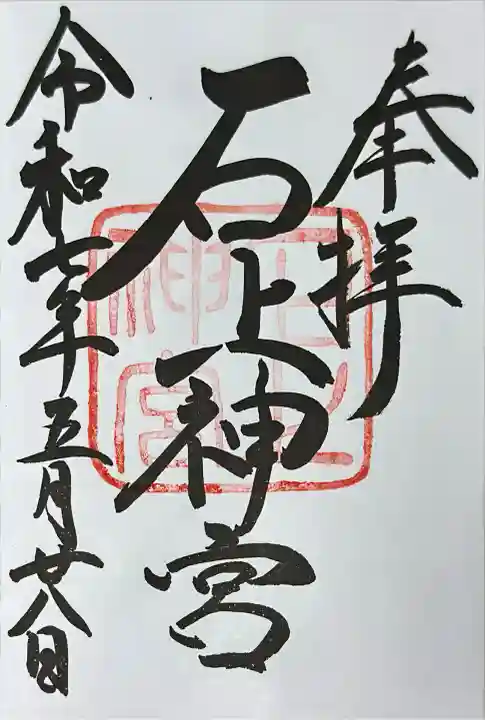 奉拝
石上神宮
令和七年五月廿八日
石上
神宮